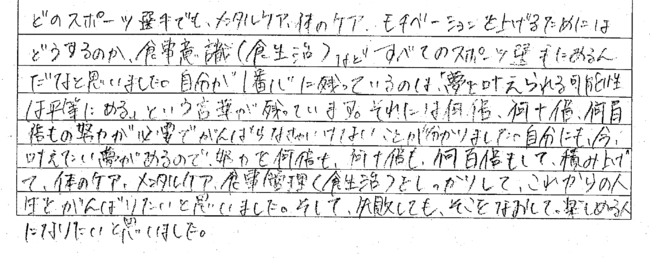 どのスポーツ選手でも、メンタルケア、体のケア、モチベーションを上げるためには
どうするのか、食事意識(食生活)などすべてのスポーツ選手にあるん
だなと思いました。自分が1番心に残っているのは「夢を叶えられる可能性
は平等にある」という言葉が残っています。それには何倍、何十倍、何百
倍もの努力が必要でがんばらなきゃいけないことが分かりました。自分にも、今、
叶えたい夢があるので、努力を何倍も、何十倍も、何百倍もして、積み上げ
て、体のケア、メンタルケア、食事管理(食生活)をしっかりして、これからの人
生をがんばりたいと思いました。そして、失敗しても、そこをなおして。楽しめる人
になりたいと思いました。